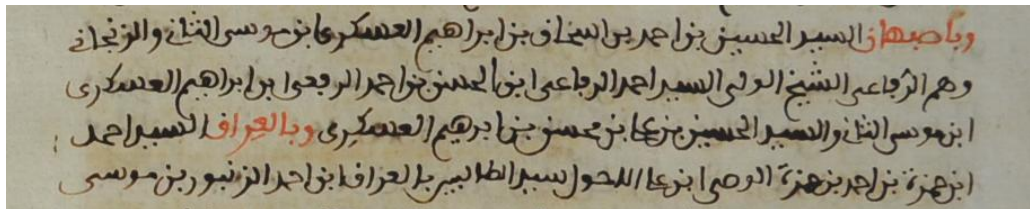 وباصبهان السيد الحسين بن احمد بن اسحاق بن ابراهيم العسكري بن موسى الثاني والزنجاني
وهم الرفاعي الشيخ الولي السيد احمد الرفاعي ابن الحسن بن احمد الرفعي ابن ابراهيم العسكري
ابن موسى الثاني والسيد الحسين بن علي بن محسن بن ابرهيم العسكري وبالعراق السيد احمد
ابن حمزة بن احمد بن حمزة الوصي ابن علي الاحول سيد الطالبيين بالعراق ابن احمد الزنبور بن موسى